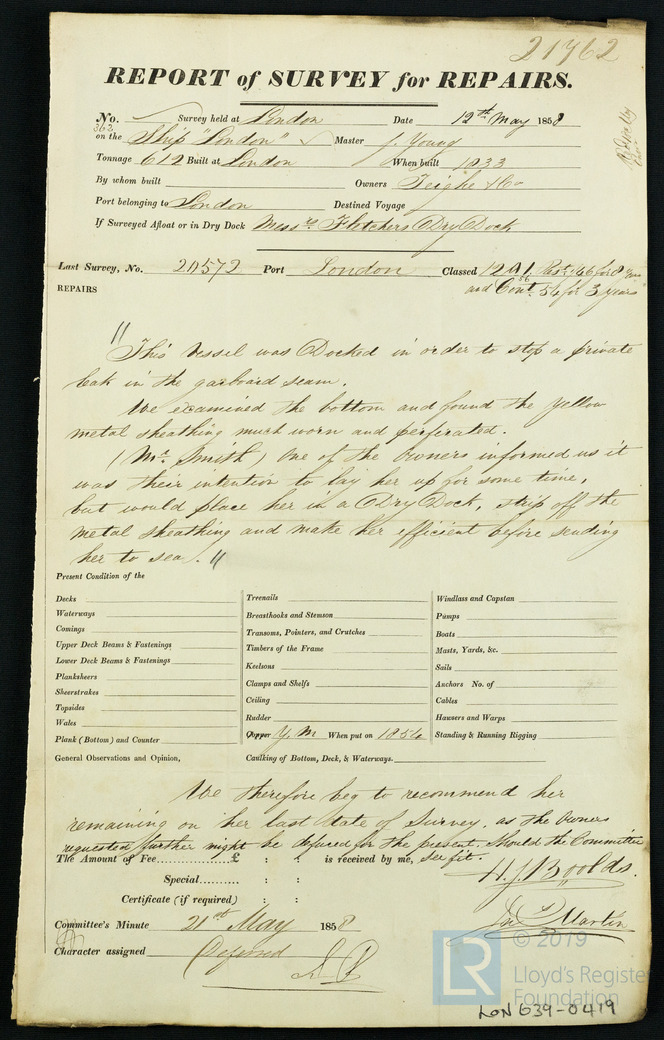 21762
REPORT of SURVEY for REPAIRS.
No. Survey held at London Date 12th May 1858
362
on the Ship "London" Master J. Young
Tonnage 612 Built at London When built 1833
By whom built Owners Teighe & Co
Port belonging to London Destined Voyage
If Surveyed Afloat or in Dry Dock Messrs Fletchers Dry Dock
Last Survey, No. 20572 Port London Classed 12 A 1. Rest. 46 for 8 Years
and Cont. 54 for 3 years
56
REPAIRS
"This Vessel was Docked in order to stop a private
leak in the garboard seam.
We examined the bottom and found the yellow
metal sheathing much worn and perforated.
(Mr. Smith) One of the Owners informed us it
was their intention to lay her up for some time,
but would place her in a Dry Dock, strip off the
metal sheathing and make her efficient before sending
her to sea."
Present Condition of the
Decks
Waterways
Comings
Upper Deck Beams & Fastenings
Lower Deck Beams & Fastenings
Planksheers
Sheerstrakes
Topsides
Wales
Plank (Bottom) and Counter
Treenails
Breasthooks and Stemson
Transoms, Pointers, and Crutches
Timbers of the Frame
Keelsons
Clamps and Shelfs
Ceiling
Rudder
Copper Y. M. When put on 1854
Windlass and Capstan
Pumps
Boats
Masts, Yards, &c.
Sails
Anchors No. of
Cables
Hawsers and Warps
Standing & Running Rigging
General Observations and Opinion, Caulking of Bottom, Deck, & Waterways.
We therefore beg to recommend her
remaining on her last state of Survey, as the Owners
requested further might be defered for the present. Should the Committee
see fit.
The Amount of Fee............£ : : is received by me,
H. J. Boolds.
Special.......... : :
Certificate (if required) : :
Jas Martin
Committee's Minute 21st May 1858
Character assigned Deferred
© 2019
LR
Lloyd's Register
Foundation
LON 639-0419